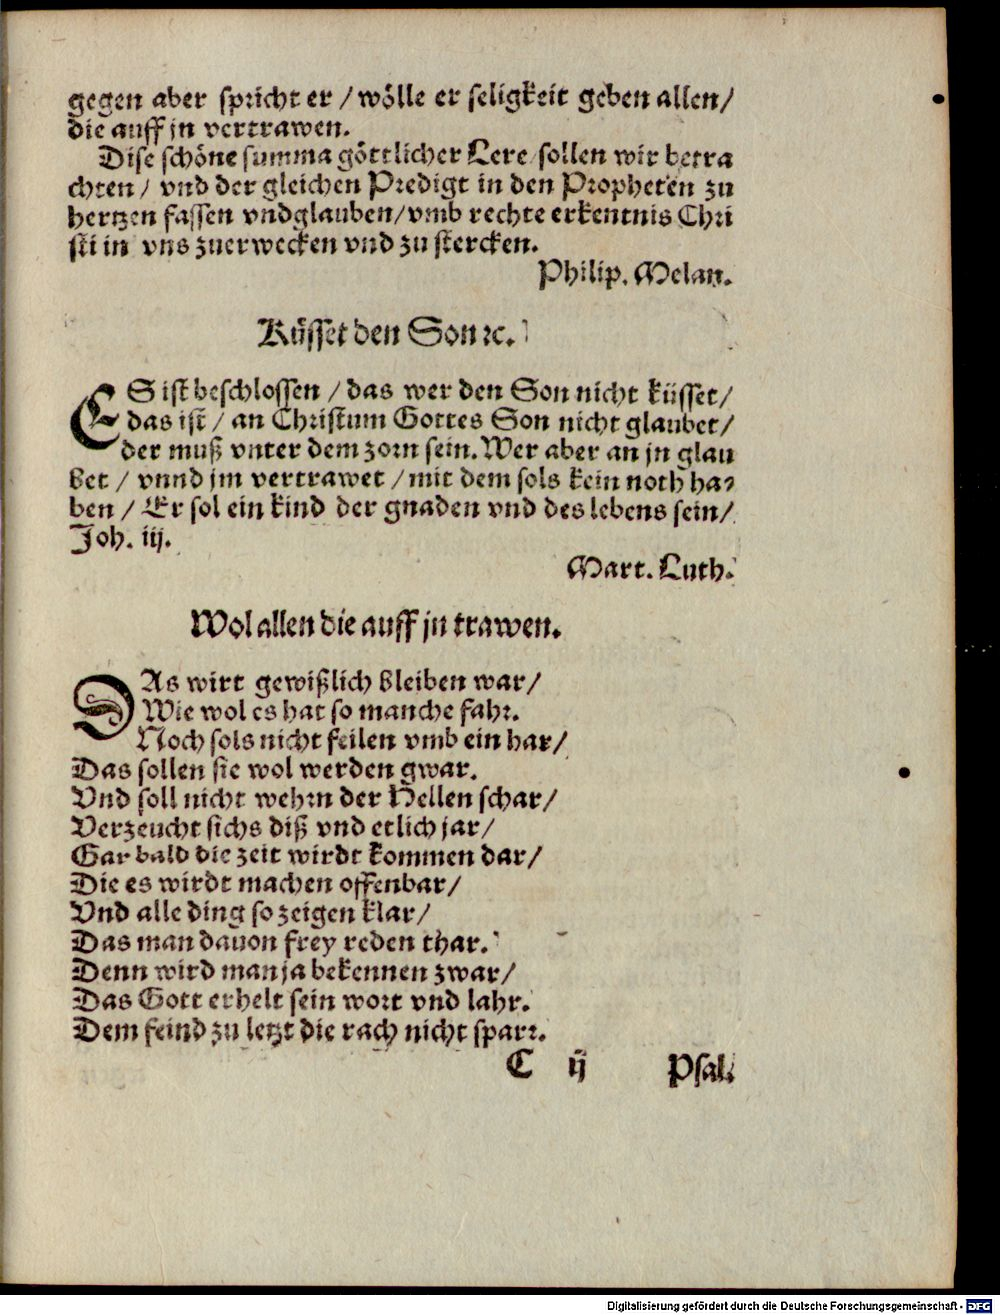 gegen aber spricht er / wölle er seligkeit geben allen/
die auff jn vertrawen.
Dise schöne summa göttlicher Lere sollen wir betra
chten / vnd der gleichen Predigt in den Propheten zu
hertzen fassen vndglauben/vmb rechte erkentnis Chri
sti in vns zuerwecken vnd zu stercken.
Philip. Melan.
Küsset den Son ꝛc.
ES ist beschlossen / das wer den Son nicht küsset/
das ist / an Christum Gottes Son nicht glaubet/
der muß vnter dem zorn sein. Wer aber an jn glau
bet / vnnd jm vertrawet / mit dem sols kein noth ha⸗
ben / Er sol ein kind der gnaden vnd des lebens sein/
Joh. iij.
Mart. Luth.
Wol allen die auff jn trawen.
DAs wirt gewißlich bleiben war/
Wie wol es hat so manche fahr.
Noch sols nicht feilen vmb ein har/
Das sollen sie wol werden gwar.
Vnd soll nicht wehrn der Hellen schar/
Verzeucht sichs diß vnd etlich jar/
Gar bald die zeit wirdt kommen dar/
Die es wirdt machen offenbar/
Vnd alle ding so zeigen klar/
Das man dauon frey reden thar.
Denn wird man ja bekennen zwar/
Das Gott erhelt sein wort vnd lahr.
Dem feind zu letzt die rach nicht spart.
C ij Psal.
Digitalisierung gefördert durch die Deutsche Forschungsgemeinschaft - DFG